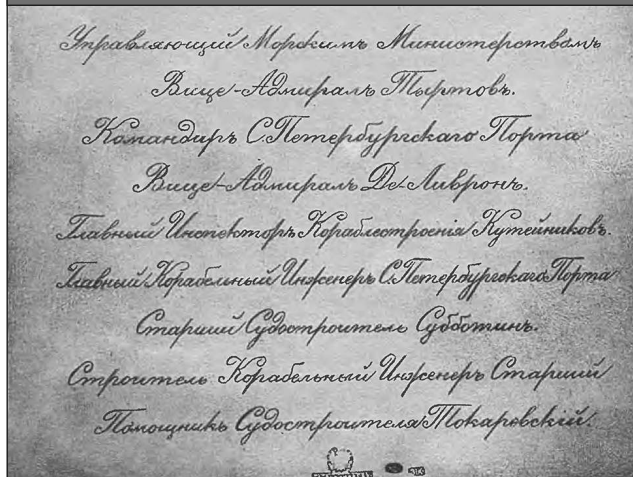 Управляющій Морскимъ Министерствомъ
Вице-Адмиралъ Тыртовъ.
Командиръ С.Петербургскаго Порта
Вице-Адмиралъ Де-Ливронъ.
Главный Инспекторъ Кораблестроенія Кутейниковъ.
Главный Корабельный Инженеръ С.Петербургскаго Порта
Старшій Судостроитель Субботинъ.
Строитель Корабельный Инженеръ Старшій
Помощникъ Судостроителя Токаревскій.